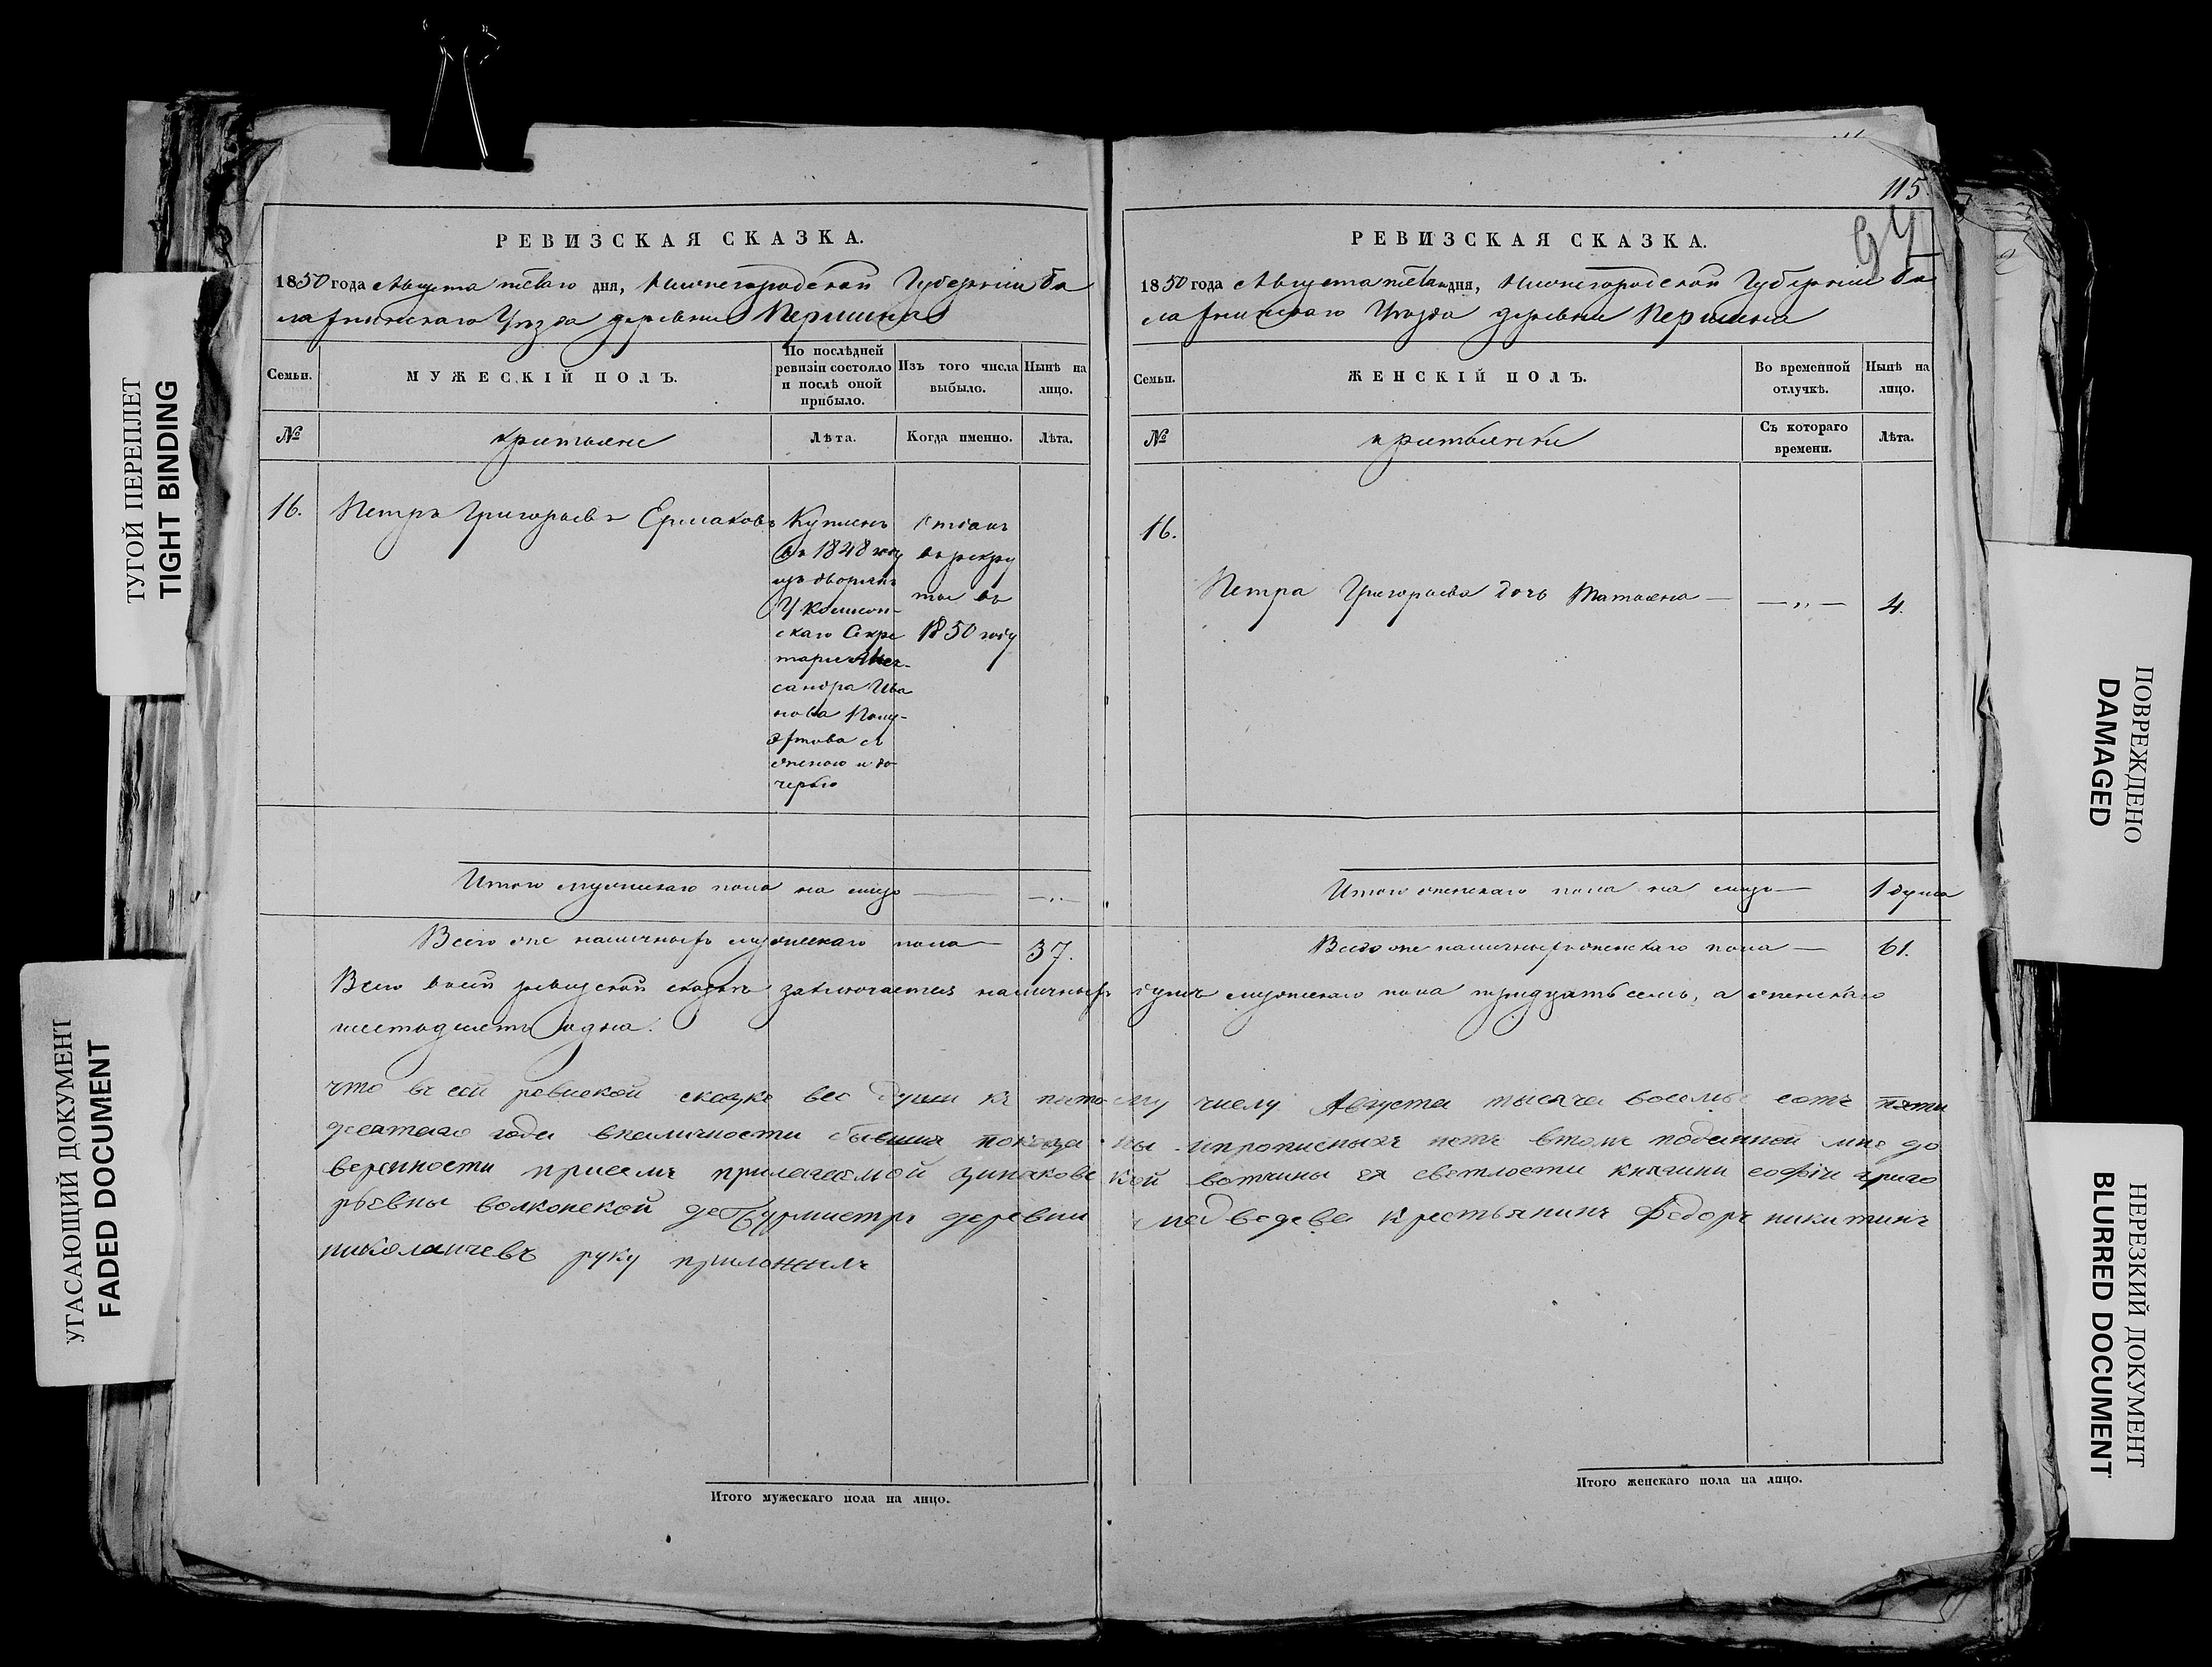 115
94
РЕВИЗСКАЯ СКАЗКА.
1850 года Августа дня, Нижегородской Губернiи Ба
лахнинскаго Уѣзда деревни Першина
Семьи.
МУЖЕСКIЙ ПОЛЪ.
По послѣдней ревизiи состояло и послѣ оной прибыло.
Изъ того числа выбыло.
Нынѣ на лицо.
№
крестьяне
Лѣта.
Когда именно.
Лѣта.
16.
Петръ Григорьевъ Ермаковъ
Купленъ
въ 1848 году
изъ дворянъ
У
скаго Секре
таря Алек-
сандра Ива
нова
съ
женою и до
черью
отданъ
въ рекру
ты въ
1850 году
Итого мужескаго пола на лицо — —„—
Всего же наличныхъ мужескаго пола — 37.
РЕВИЗСКАЯ СКАЗКА.
1850 года Августа дня, Нижегородской Губернiи Ба
лахнинскаго Уѣзда деревни Першина
Семьи.
ЖЕНСКIЙ ПОЛЪ.
Во временной отлучкѣ.
Нынѣ на лицо.
№
крестьянки
Съ котораго времени.
Лѣта.
16.
Петра Григорьева дочь Татьяна — —„— 4.
Итого женскаго пола на лицо — 1 душа
Всего же наличныхъ женскаго пола — 61.
Всего въ сей ревизской сказкѣ заключается наличныхъ душъ мужескаго пола тридцать семь, а женскаго
шестьдесятъ одна.
что въ сей ревиской скаске все души къ пято му числу Августа тысяча восемь сотъ пяти
десятаго года вналичности бывшия показа ны ипрописныхъ нетъ втомъ поданной мне до
веренности присемъ прилагаемой кой вотчины ея светлости княгини софiи григо
рьевны волконской деревни медведева крестьянинъ Федоръ никитинъ
николаичевъ руку приложилъ
Итого мужескаго пола на лицо.
Итого женскаго пола на лицо.
ТУГОЙ ПЕРЕПЛЕТ
TIGHT BINDING
УГАСАЮЩИЙ ДОКУМЕНТ
FADED DOCUMENT
ПОВРЕЖДЕНО
DAMAGED
НЕРЕЗКИЙ ДОКУМЕНТ
BLURRED DOCUMENT